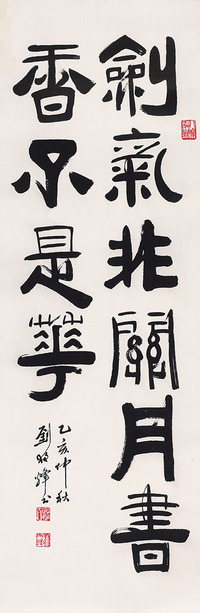 劍氣非關月書
香不是華
乙亥仲秋
劉 煇書